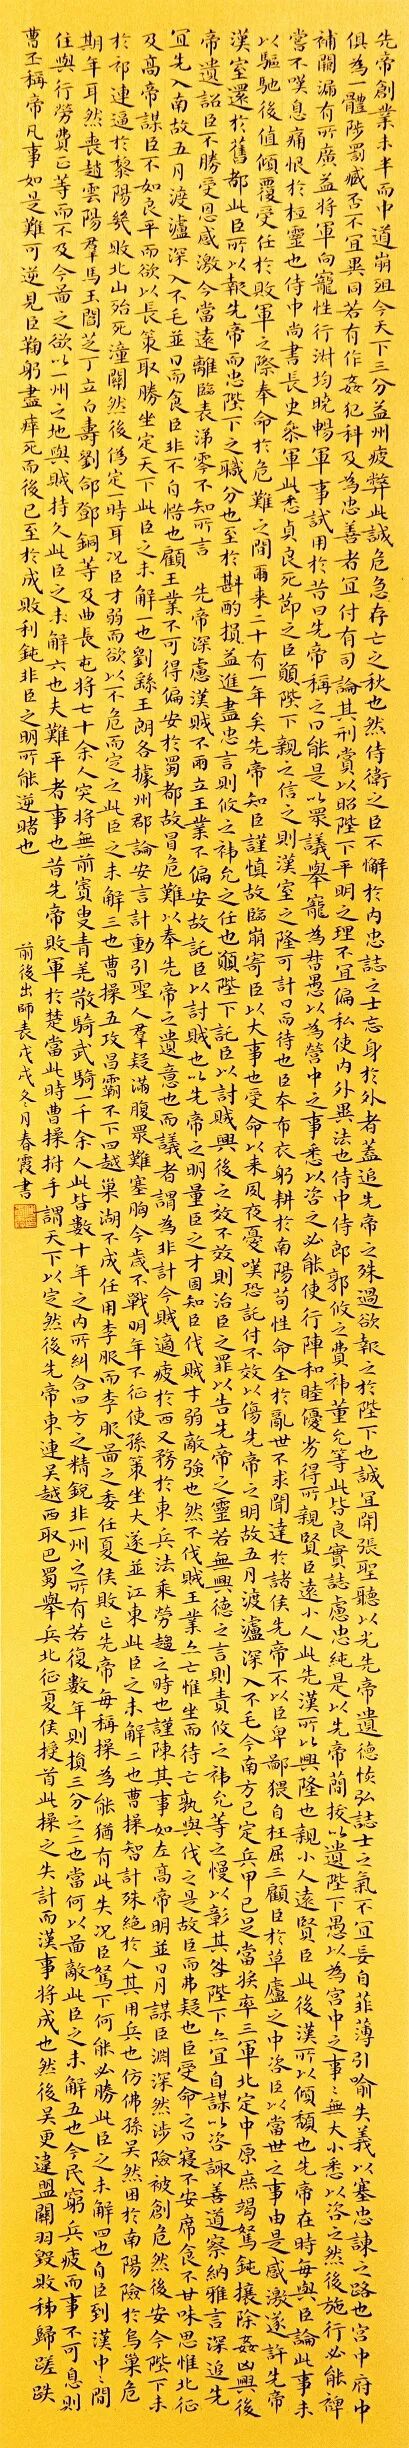 先帝創業未半而中道崩殂今天下三分益州疲弊此誠危急存亡之秋也然侍衛之臣不懈於內忠誌之士忘身於外者蓋追先帝之殊遇欲報之於陛下也誠宜開張聖聽以光先帝遺德恢弘誌士之氣不宜妄自菲薄引喻失義以塞忠諫之路也宮中府中
俱為一體陟罰臧否不宜異同若有作姦犯科及為忠善者宜付有司論其刑賞以昭陛下平明之理不宜偏私使內外異法也侍中侍郎郭攸之費禕董允等此皆良實誌慮忠純是以先帝簡拔以遺陛下愚以為宮中之事々無大小悉以咨之然後施行必能裨
補闕漏有所廣益將軍向寵性行淑均曉暢軍事試用於昔日先帝稱之曰能是以眾議舉寵為督愚以為營中之事悉以咨之必能使行陣和睦優劣得所親賢臣遠小人此先漢所以興隆也親小人遠賢臣此後漢所以傾頹也先帝在時每與臣論此事未
嘗不嘆息痛恨於桓靈也侍中尚書長史參軍此悉貞良死節之臣願陛下親之信之則漢室之隆可計日而待也臣本布衣躬耕於南陽苟性命全於亂世不求聞達於諸侯先帝不以臣卑鄙猥自枉屈三顧臣於草廬之中咨臣以當世之事由是感激遂許先帝
以驅馳後值傾覆受任於敗軍之際奉命於危難之間爾來二十有一年矣先帝知臣謹慎故臨崩寄臣以大事也受命以來夙夜憂嘆恐託付不效以傷先帝之明故五月渡瀘深入不毛今南方已定兵甲已足當獎率三軍北定中原庶竭駑鈍攘除姦凶興復
漢室還於舊都此臣所以報先帝而忠陛下之職分也至於斟酌損益進盡忠言則攸之禕允之任也願陛下託臣以討賊興復之效不效則治臣之罪以告先帝之靈若無興德之言則責攸之禕允等之慢以彰其咎陛下亦宜自謀以咨諏善道察納雅言深追先
帝遺詔臣不勝受恩感激今當遠離臨表涕零不知所言 先帝深慮漢賊不兩立王業不偏安故託臣以討賊也以先帝之明量臣之才固知臣伐賊才弱敵強也然不伐賊王業亦亡惟坐而待亡孰與伐之是故臣而弗疑也臣受命之日寢不安席食不甘味思惟北征
宜先入南故五月渡瀘深入不毛並日而食臣非不自惜也顧王業不可得偏安於蜀都故冒危難以奉先帝之遺意也而議者謂為非計今賊適疲於西又務於東兵法乘勞趨之時也謹陳其事如左高帝明並日月謀臣淵深然涉險被創危然後安今陛下未
及高帝謀臣不如良平而欲以長策取勝坐定天下此臣之未解一也劉繇王朗各據州郡論安言計動引聖人群疑滿腹眾難塞胸今歲不戰明年不征使孫策坐大遂並江東此臣之未解二也曹操智計殊絕於人其用兵也仿佛孫吳然困於南陽險於烏巢危
於祁連逼於黎陽幾敗北山殆死潼關然後偽定一時耳況臣才弱而欲以不危而定之此臣之未解三也曹操五攻昌霸不下四越巢湖不成任用李服而李服圖之委任夏侯敗亡先帝每稱操為能猶有此失況臣駑下何能必勝此臣之未解四也自臣到漢中々間
期年耳然喪趙雲陽群馬玉閻芝丁立白壽劉郃鄧銅等及曲長屯將七十余人突將無前賓叟青羌散騎武騎一千余人此皆數十年之內所糾合四方之精銳非一州之所有若復數年則損三分之二也當何以圖敵此臣之未解五也今民窮兵疲而事不可息則
住與行勞費正等而不及今圖之欲以一州之地與賊持久此臣之未解六也夫難平者事也昔先帝敗軍於楚當此時曹操拊手謂天下以定然後先帝東連吳越西取巴蜀舉兵北征夏侯授首此操之失計而漢事將成也然後吳更違盟關羽毀敗秭歸蹉跌
曹丕稱帝凡事如是難可逆見臣鞠躬盡瘁死而後已至於成敗利鈍非臣之明所能逆睹也
前後出師表戊戌冬月春霞書